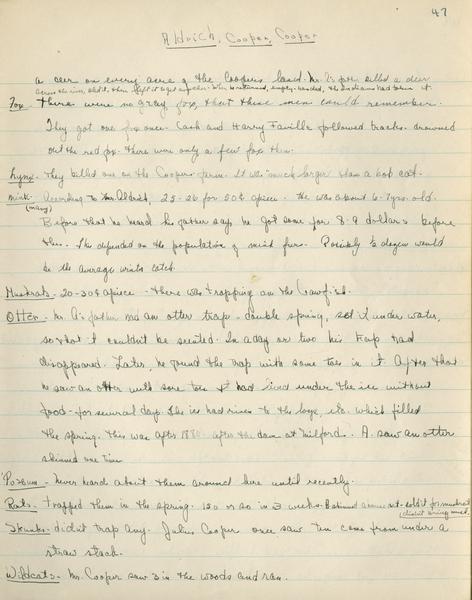 47
Aldrich, Cooper, Cooper
a deer on every acre of the Coopers land. Mr. A's father killed a deer
across the river, left it to get When he returned, empty-handed, the Indians had taken it.
Fox - There were no gray fox, that these men could remember.
They got one fox once. Cash and Harry Faville followed tracks. drowned
out the red fox. There were only a few fox then.
Lynx - They killed one on the Coopers farm. It was much larger than a bob cat.
Mink - According to Mr. Aldrich, 25-26 for 50¢ apiece. He was about 6-7 yrs. old.
(many)
Before that he heard his father say he got some for 8-9 dollars before
then. This depended on the population of mink furs. Possibly ½ dozen would
be the average winter catch.
Muskrats - 20-30¢ apiece - There was trapping on the Crawfish.
Otter - Mr. A's father had an otter trap - double spring, set it under water,
so that it couldn't be scented. In a day or two his trap had
disappeared. Later, he found the trap with some toes in it. After that
he saw an otter with sore toes & had lived under the ice without
food - for several days. The ice had risen to the logs, etc. which filled
the spring. This was after 1880 after the dam at Milford. A. saw an otter
skinned one time
'Possum - Never heard about them around here until recently.
Rats - trapped them in the spring. 150 or so in 3 weeks. sold it for muskrat
(didn't bring much.
Skunks - didn't trap any. Julius Cooper once saw ten come from under a
straw stack.
Wildcats - Mr. Cooper saw 3 in the woods and ran.